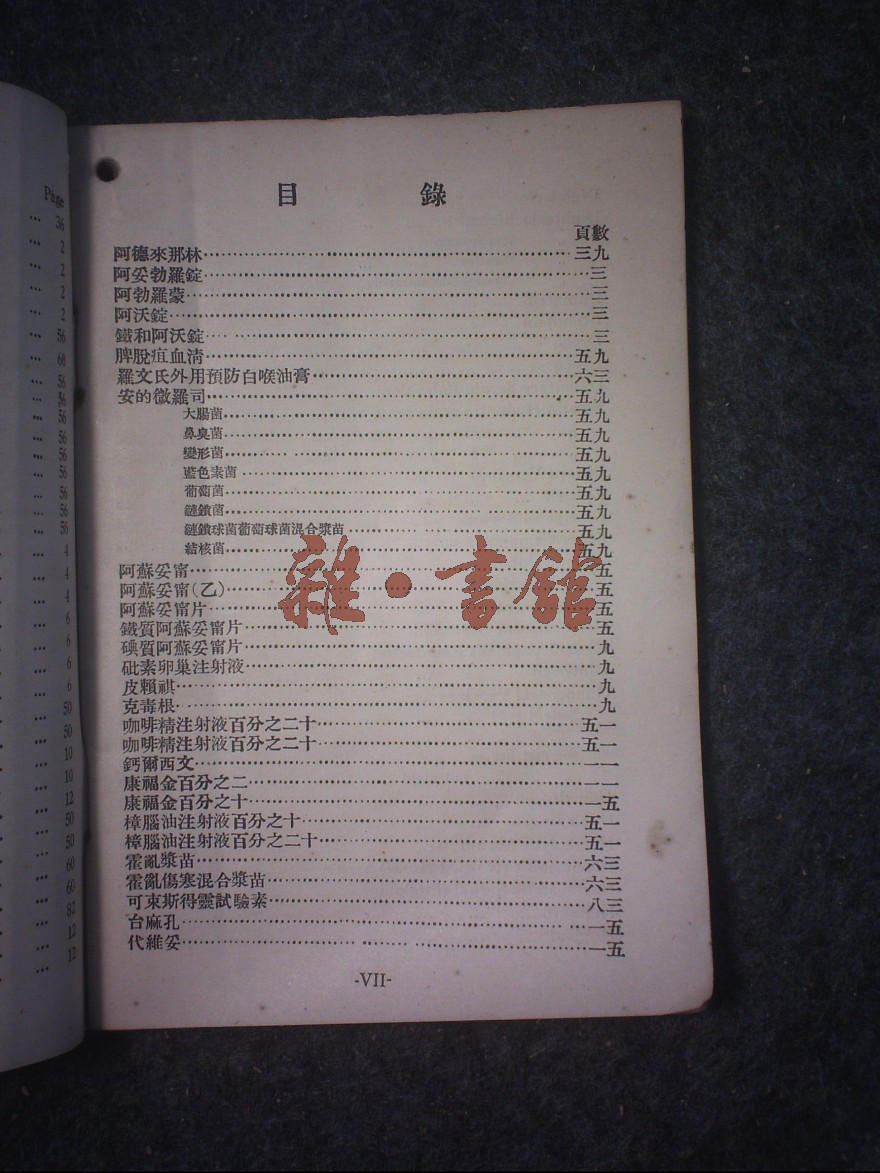 Page
36
2
2
2
2
56
60
56
56
56
56
56
56
56
4
4
4
6
6
6
6
50
50
10
10
12
50
50
60
60
82
12
12
目錄
頁數
阿德來那林 三九
阿妥勃羅錠 三
阿勃羅蒙 三
阿沃錠 三
鐵和阿沃錠 三
脾脫疽血清 五九
羅文氏外用預防白喉油膏 六三
安的微羅司 五九
大腸菌 五九
鼻臭菌 五九
變形菌 五九
藍色素菌 五九
葡萄菌 五九
鏈鎖菌 五九
鏈鎖球菌葡萄球菌混合漿苗 五九
結核菌 五九
阿蘇妥甯 五
阿蘇妥甯(乙) 五
阿蘇妥甯片 五
鐵質阿蘇妥甯片 五
碘質阿蘇妥甯片 九
砒素卵巢注射液 九
皮賴祺 九
克毒根 九
咖啡精注射液百分之二十 五一
咖啡精注射液百分之二十 五一
鈣爾西文 一一
康福金百分之二 一一
康福金百分之十 一五
樟腦油注射液百分之十 五一
樟腦油注射液百分之二十 五一
霍亂漿苗 六三
霍亂傷寒混合漿苗 六三
可束斯得靈試驗素 八三
台麻孔 一五
代維妥 一五
-VII-
雜·書館